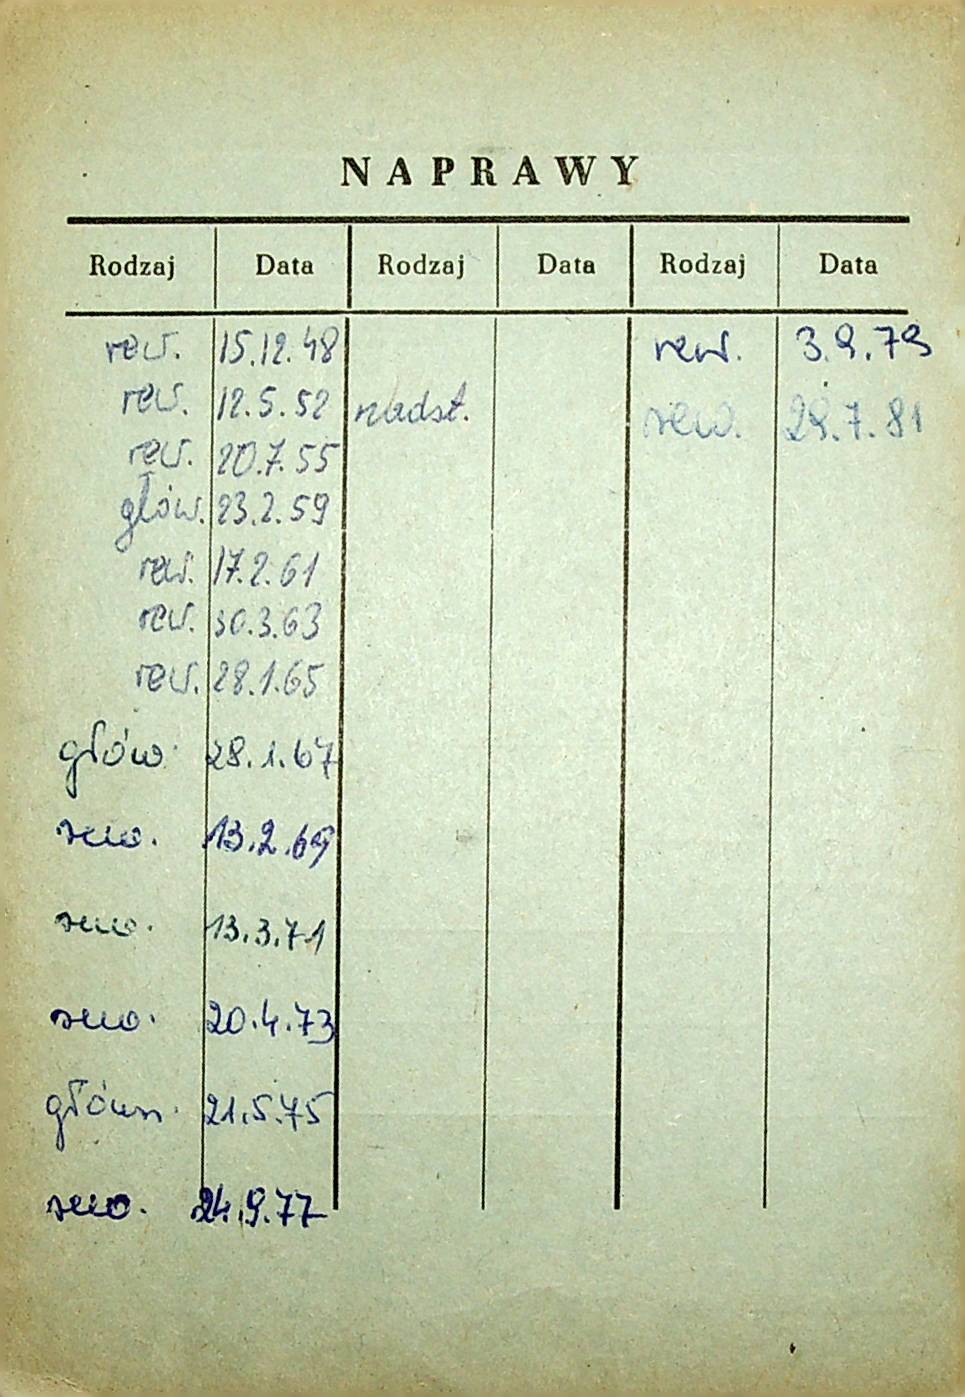 NAPRAWY
Rodzaj Data Rodzaj Data Rodzaj Data
rew. 15.12.48 rew. 3.9.79
rew. 12.5.52 nadst. rew. 29.7.81
rew. 20.7.55
głów. 23.2.59
rew. 17.2.61
rew. 30.3.63
rew. 28.1.65
głów. 28.1.67
rew. 13.2.69
rew. 13.3.71
rew. 20.4.73
główn. 21.5.75
rew. 24.9.77